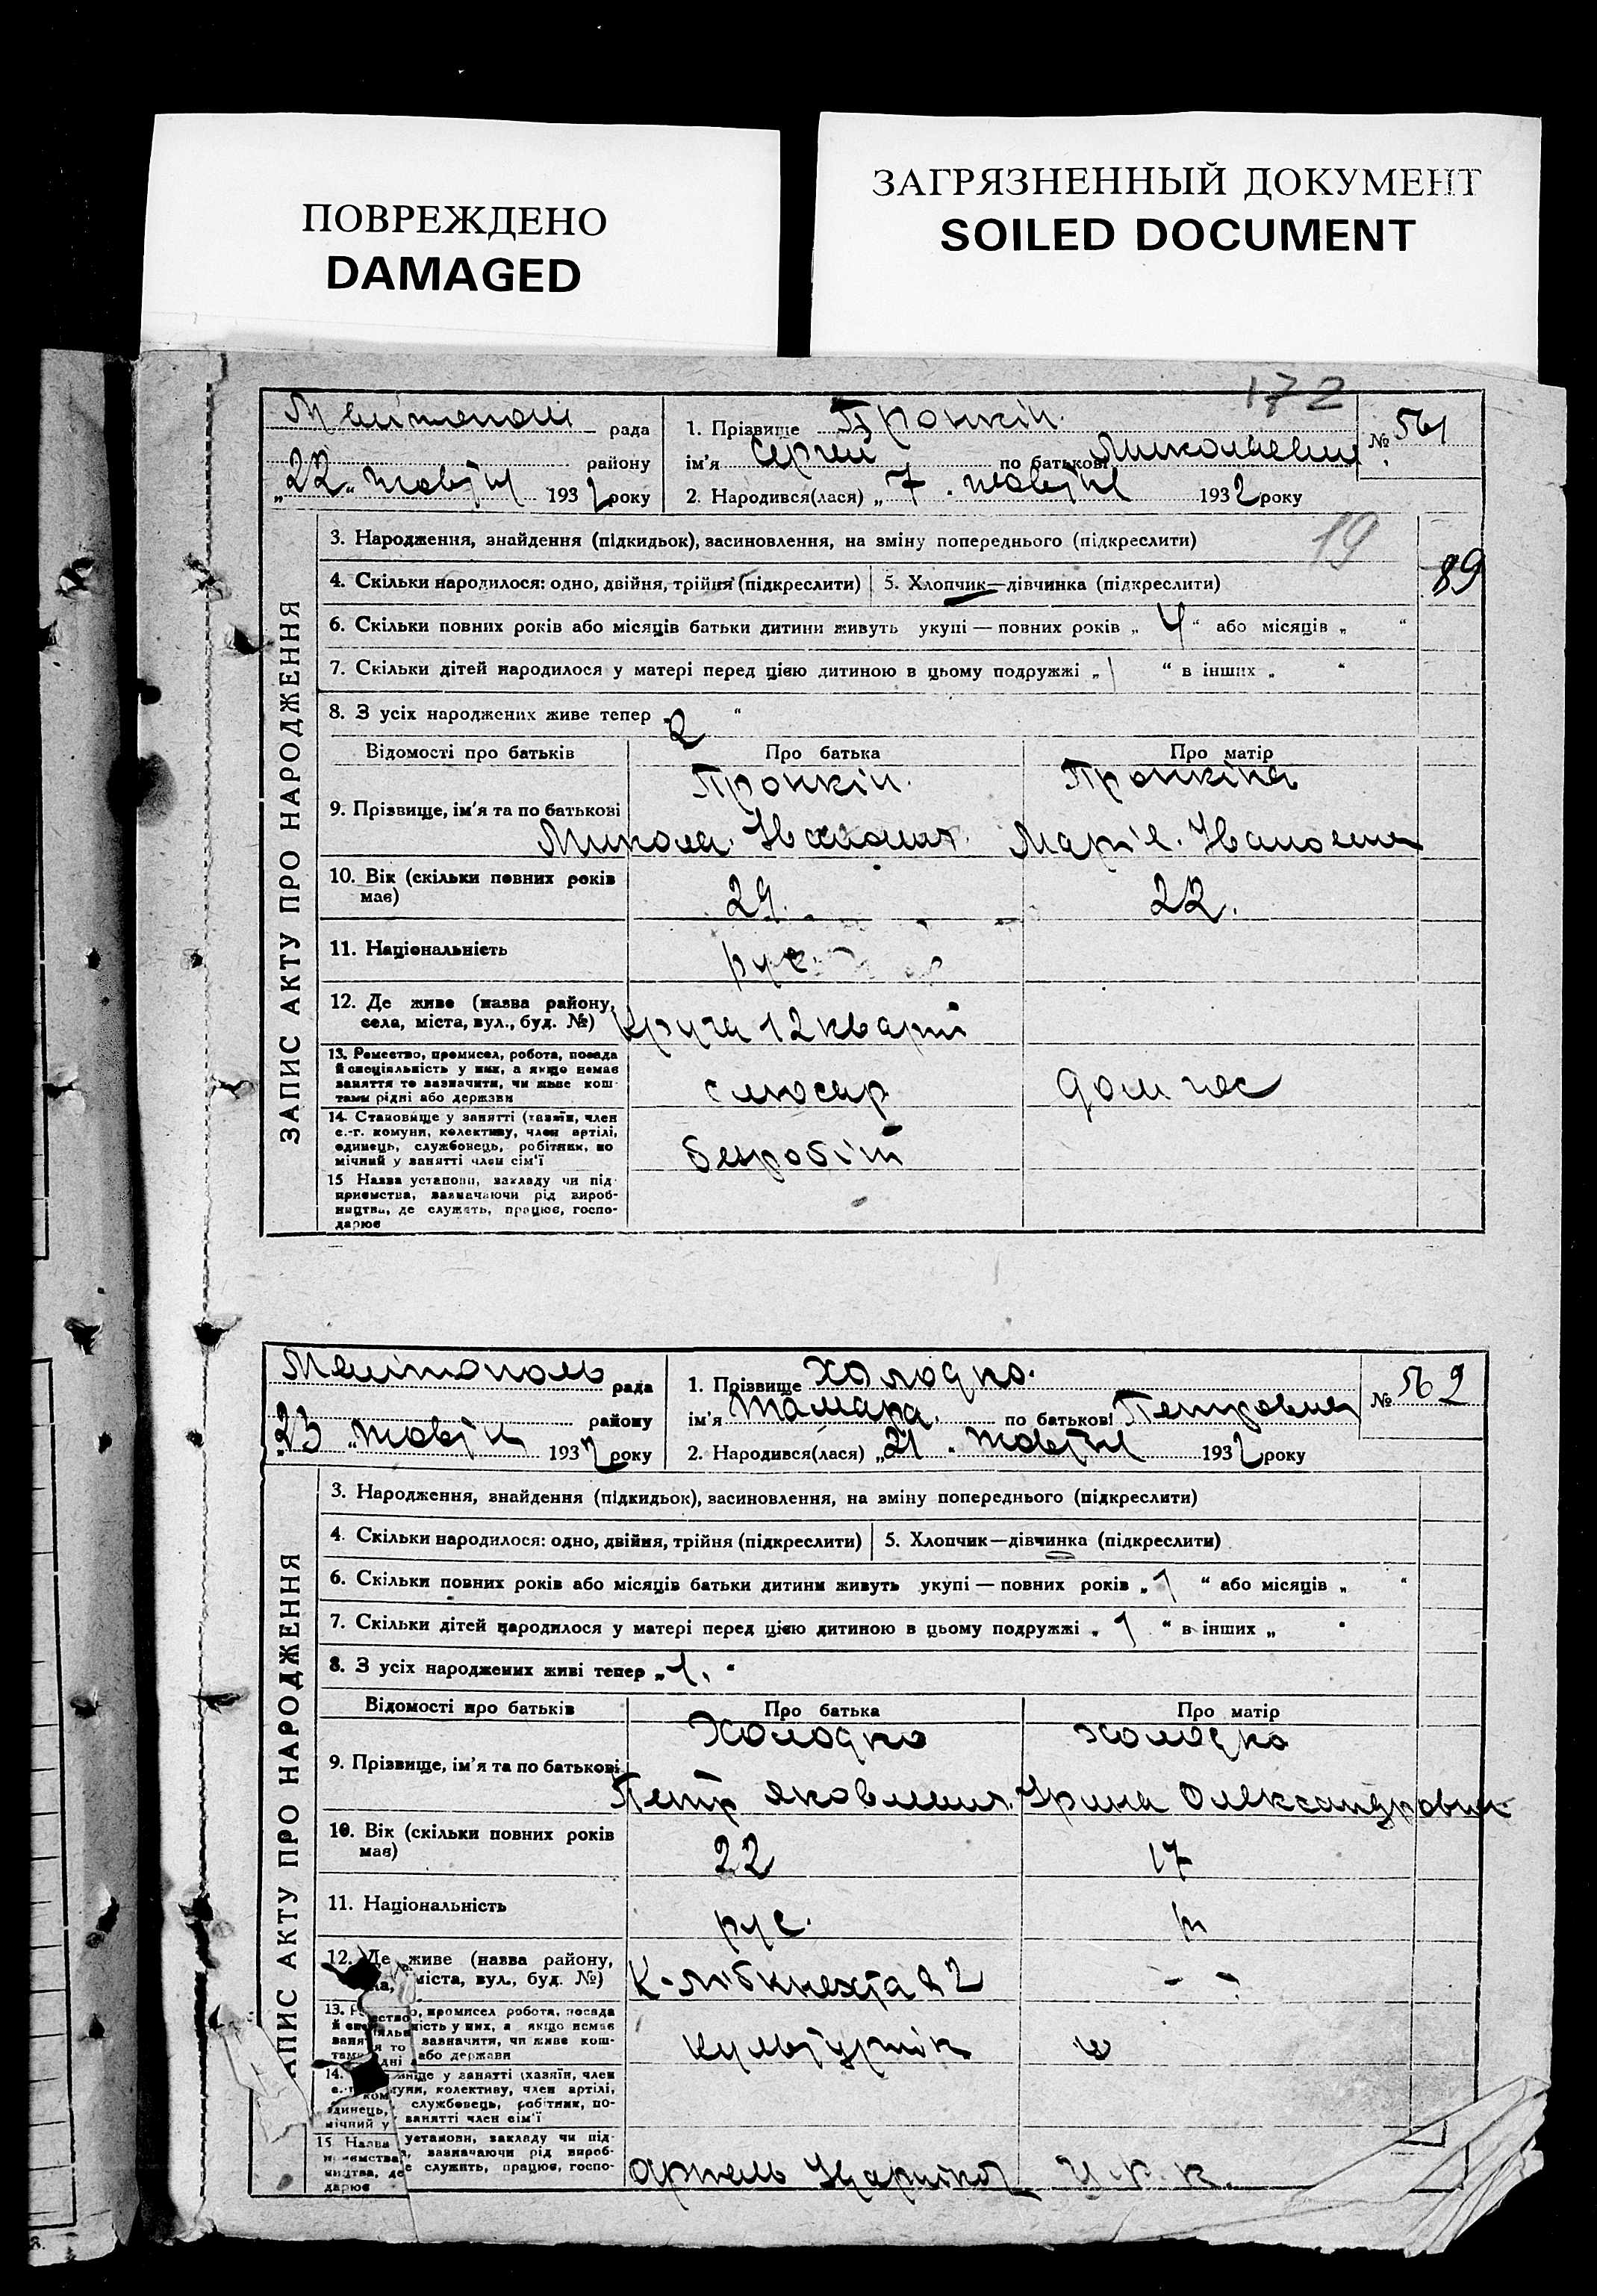 ПОВРЕЖДЕНО
DAMAGED
ЗАГРЯЗНЕННЫЙ ДОКУМЕНТ
SOILED DOCUMENT
172
рада
району
„22“ 1932 року
1. Прізвище Пронкін.
ім'я Сергей по батькові
2. Народився(лася) „7 1932 року
№ 561
ЗАПИС АКТУ ПРО НАРОДЖЕННЯ
3. Народження, знайдення (підкидьок), засиновлення, на зміну попереднього (підкреслити)
19
4. Скільки народилося: одно, двійня, трійня (підкреслити) 5. Хлопчик—дівчинка (підкреслити)
89
6. Скільки повних років або місяців батьки дитини живуть укупі — повних років „ 4 “ або місяців „ “
7. Скільки дітей народилося у матері перед цією дитиною в цьому подружжі „ 1 “ в інших „ “
8. З усіх народжених живе тепер 2 “
Відомості про батьків Про батька Про матір
Пронкін. Пронкіна
9. Прізвище, ім'я та по батькові
Микола Марія. Івановна
10. Вік (скільки повних років
має)
29. 22.
11. Національність рус.
12. Де живе (назва району,
села, міста, вул., буд. №)
13. Ремество, промисел, робота, посада
й спеціяльність у них, а якщо немає
заняття то зазначити, чи живе кош-
тами рідні або держави
слюсар дом гос
14. Становище у занятті (хазяїн, член
с.-г. комуни, колективу, член артілі,
одинець, службовець, робітник, по
мічний у занятті член сім'ї
безробіт
15 Назва установи, закладу чи під-
приємства, зазначаючи рід вироб-
ництва, де служить, працює, госпо-
дарює
Мелітополь рада
району
„23“ 1932 року
1. Прізвище Холодко.
ім'я Тамара. по батькові Петровна
2. Народився(лася) „21 1932 року
№ 562
ЗАПИС АКТУ ПРО НАРОДЖЕННЯ
3. Народження, знайдення (підкидьок), засиновлення, на зміну попереднього (підкреслити)
4. Скільки народилося: одно, двійня, трійня (підкреслити) 5. Хлопчик—дівчинка (підкреслити)
6. Скільки повних років або місяців батьки дитини живуть укупі — повних років „ 1 “ або місяців „ “
7. Скільки дітей народилося у матері перед цією дитиною в цьому подружжі „ 1 “ в інших „ “
8. З усіх народжених живі тепер „ 1. “
Відомості про батьків Про батька Про матір
Холодко Холодко
9. Прізвище, ім'я та по батькові
Петр Яковлевич. Ірина Олександровна
10. Вік (скільки повних років
має)
22 17
11. Національність рус.
12. Де живе (назва району,
міста, вул., буд. №)
К-Лібкнехта 22 - -
промисел робота, посада
ність у них, а якщо немає
зазначити, чи живе кош-
або держави
14. у занятті (хазяїн, член
колективу, член артілі,
службовець, робітник, по-
занятті член сім'ї
15 Назва установи, закладу чи під-
зазначаючи рід вироб-
служить, працює, госпо-
дарює
Артель